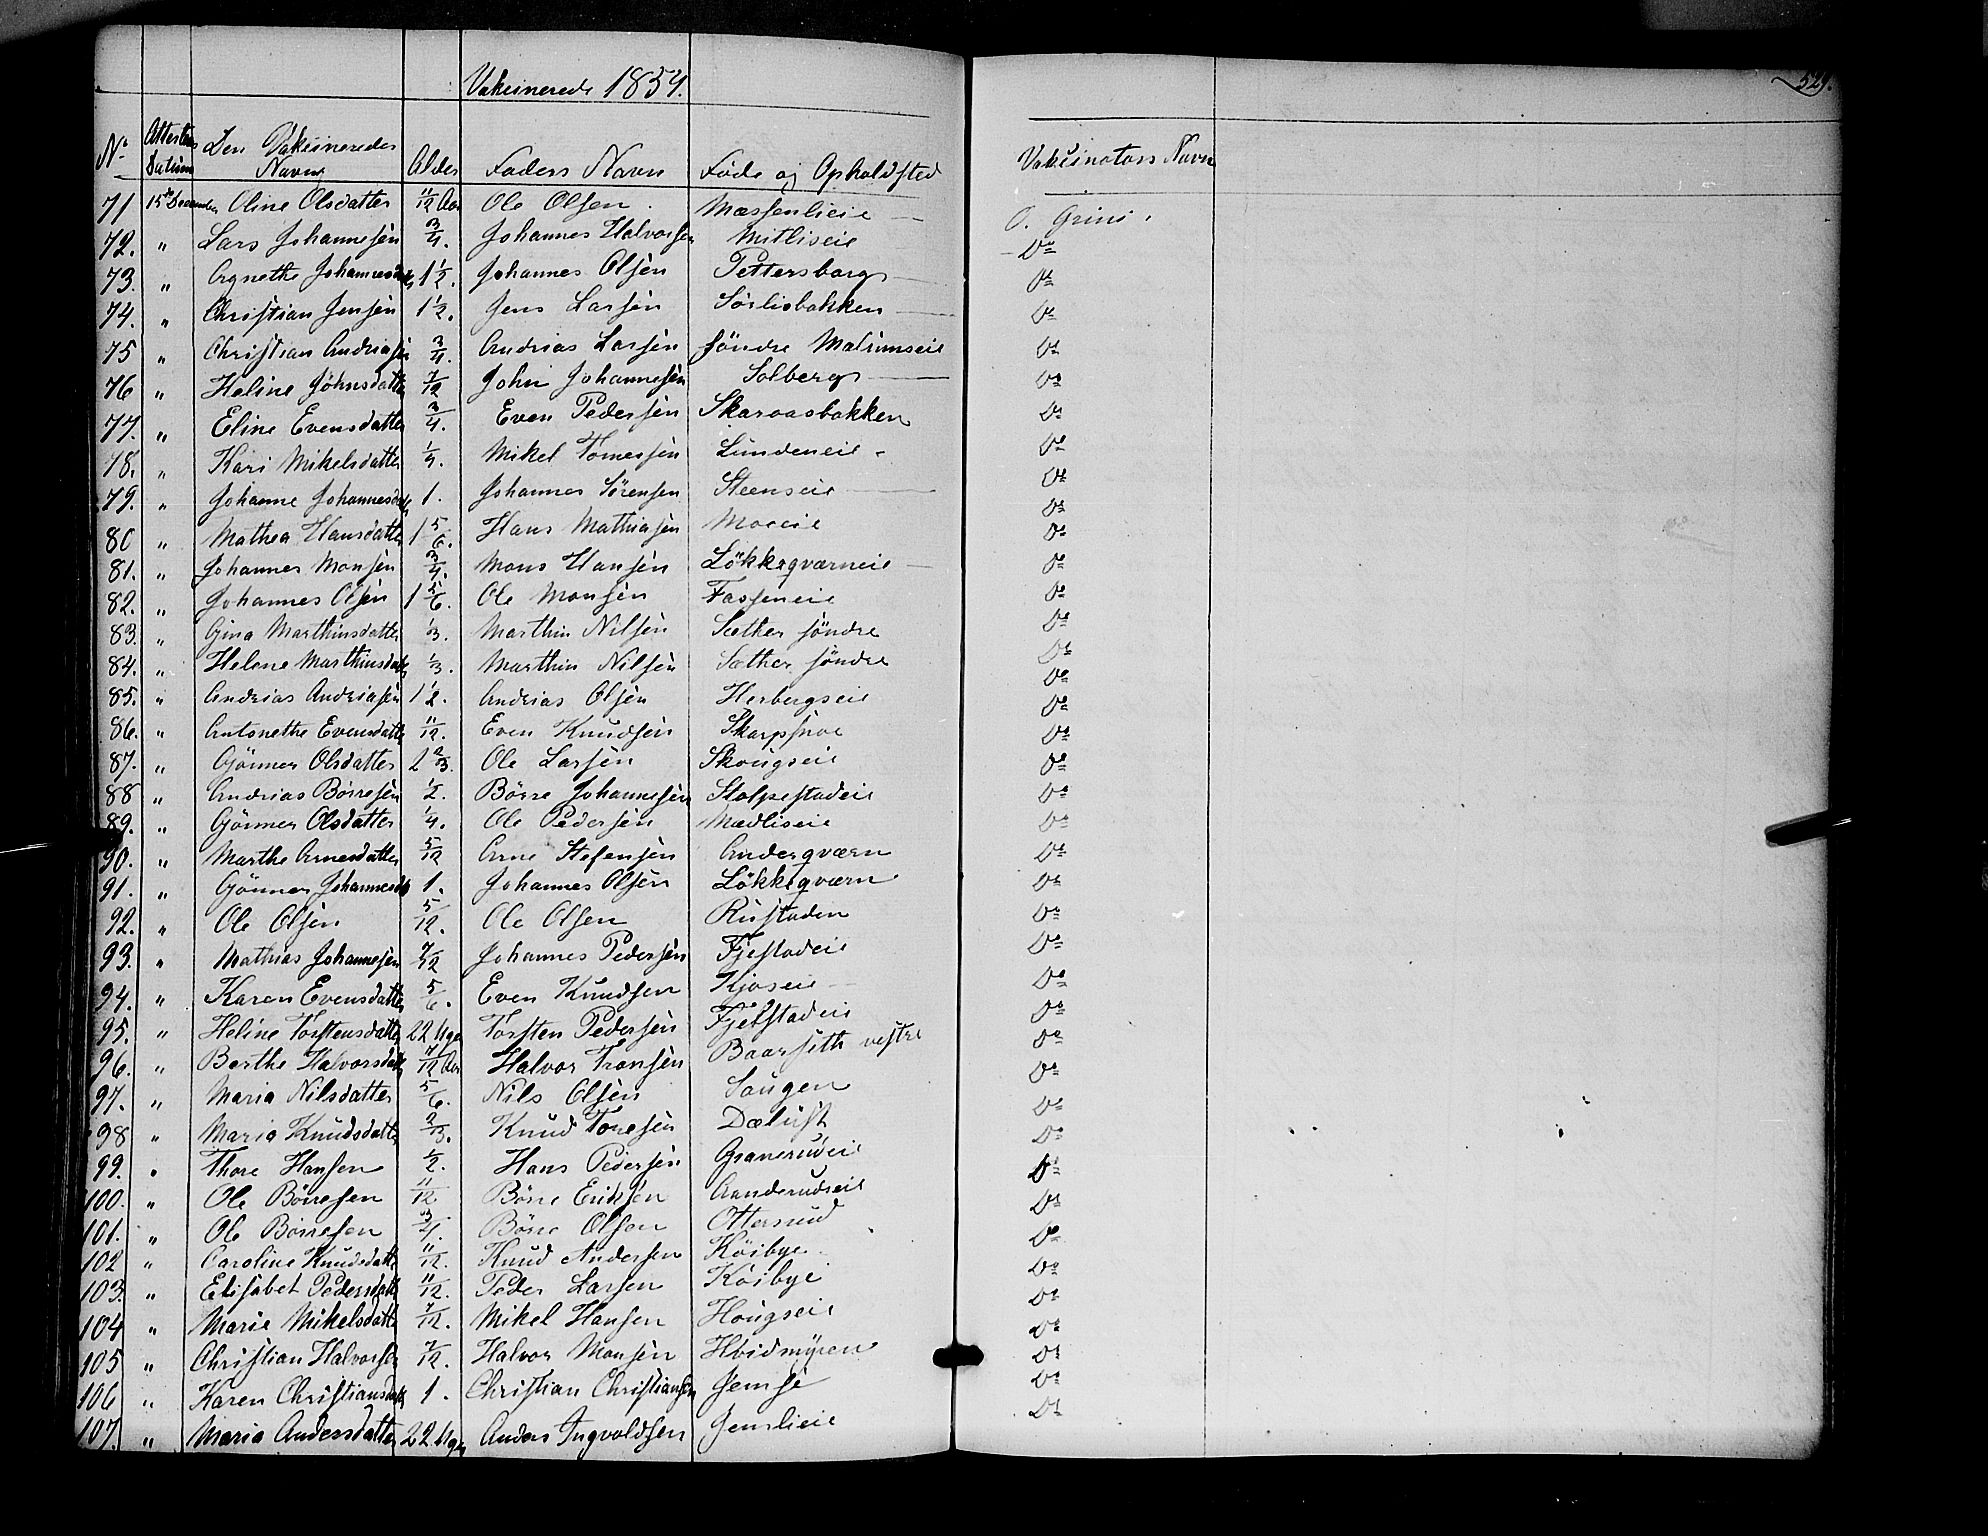 Vakcinerede 1854.
529.
No Attestens Datum Den Vakcineredes Navn Alder Faders Navn Føde og Opholdsted Vakcinators Navn
71 15de December Oline Olsdatter 11/12 Aar Ole Olsen Massenlieie O. Grini.
72. " Lars Johannesen 3/4. Johannes Halvorsen Mitliseie Do
73. " Agnethe Johannesdatter 1 1/2. Johannes Olsen Pettersborg Do
74. " Christian Jensen 1 1/2. Jens Larsen Sörlisbakken Do
75 " Christian Andriasen 3/4. Andrias Larsen söndre Matrumseie Do
76 " Heline Johnsdatter 7/12 John Johannesen Solberg Do
77. " Eline Evensdatter 3/4. Even Pedersen Skaraasbakken Do
78. " Kari Mikelsdatter 1/4. Mikel Tomessen Lundeneie Do
79. " Johanne Johannesdatter 1. Johannes Sörensen Steenseie Do
80 " Mathea Hansdatter 1 5/6. Hans Mathiasen Moeeie Do
81. " Johannes Monsen 3/4. Mons Hansen Lökkeqværneie Do
82. " Johannes Olsen 1 5/6. Ole Monsen Fasseneie Do
83. " Gina Marthinsdatter 1/3. Marthin Nilsen Sæther söndre Do
84. " Helene Marthinsdatter 1/3. Marthin Nilsen Sæther söndre Do
85. " Andrias Andriasen 1 1/2. Andrias Olsen Herbergseie Do
86. " Antonethe Evensdatter 11/12. Even Knudsen Skarpsnoe Do
87. " Gönner Olsdatter 2 2/3. Ole Larsen Skougseie Do
88 " Andrias Börresen 1/2. Börre Johannesen Stolpestadeie Do
89. " Gönner Olsdatter 1/4. Ole Pedersen Mædliseie Do
90. " Marthe Arnesdatter 5/12 Arne Stefensen Anderqværn Do
91. " Gönner Johannesdatter 1. Johannes Olsen Lökkeqværn Do
92. " Ole Olsen 5/12. Ole Olsen Rustaden Do
93. " Mathias Johannesen 7/12 Johannes Pedersen Fjestadeie Do
94. " Karen Evensdatter 5/6. Even Knudsen Kjoseie Do
95. " Heline Torstensdatter 22 Uger Torsten Pedersen Fjelstadeie Do
96. " Berthe Halvorsdatter 11/12 Aar Halvor Fransen Baarseth vestre Do
97. " Maria Nilsdatter 5/6. Nils Olsen Saugen Do
98 " Maria Knudsdatter 2/3. Knud Tonesen Dælust Do
99. " Thore Hansen 1/2. Hans Pedersen Granerudeie Do
100. " Ole Börresen 11/12 Börre Eriksen Aanderudseie Do
101. " Ole Börresen 3/4. Börre Olsen Ottersrud Do
102 " Caroline Knudsdatter 11/12. Knud Andersen Köibye Do
103. " Elisabet Pedersdatter 11/12. Peder Larsen Köibye Do
104 " Marie Mikelsdatter 7/12. Mikel Hansen Hougseie Do
105 " Christian Halvorsen 7/12. Halvor Monsen Hvidmyren Do
106 " Karen Christiansdatter 1. Christian Christiansen Jemse Do
107. " Maria Andersdatter 22 Uger Anders Ingvoldsen Jemlieie Do